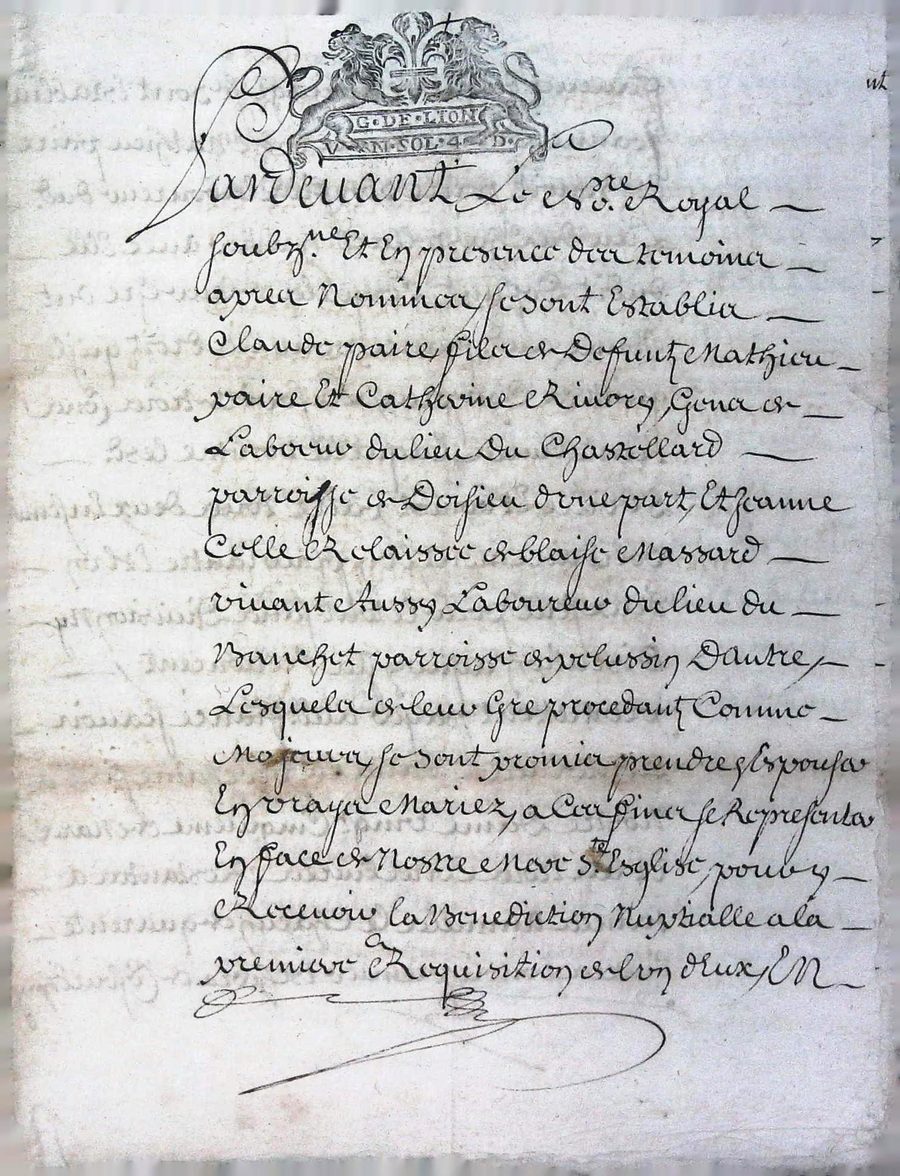 G·DE·LION
VN·SOL·4·D·
Pardevant Le No.re Royal
soubzs.ne Et En presence des temoins
apres Nommes, se sont Establis
Claude paire, fils de Defunt Mathieu
paire Et Catherine Rivory, Gens de
Labeur du lieu Du Chastellard
parroisse de Doisieu d'une part, Et Jeanne
Celle Relaissee de blaise Massard
vivant Aussy Laboureur du lieu du
Banchet parroisse de pelussin D'autre,
Lesquels de leur Gre procedant Comme
Majeurs, se sont promis prendre & Espouser
En vrays Mariez, a Ces fins se Representer
En face de Nostre Mere S.te Esglise, pour y
Recevoir la Benediction Nuptialle a la
premiere Requisition de lun d'Eux, EN